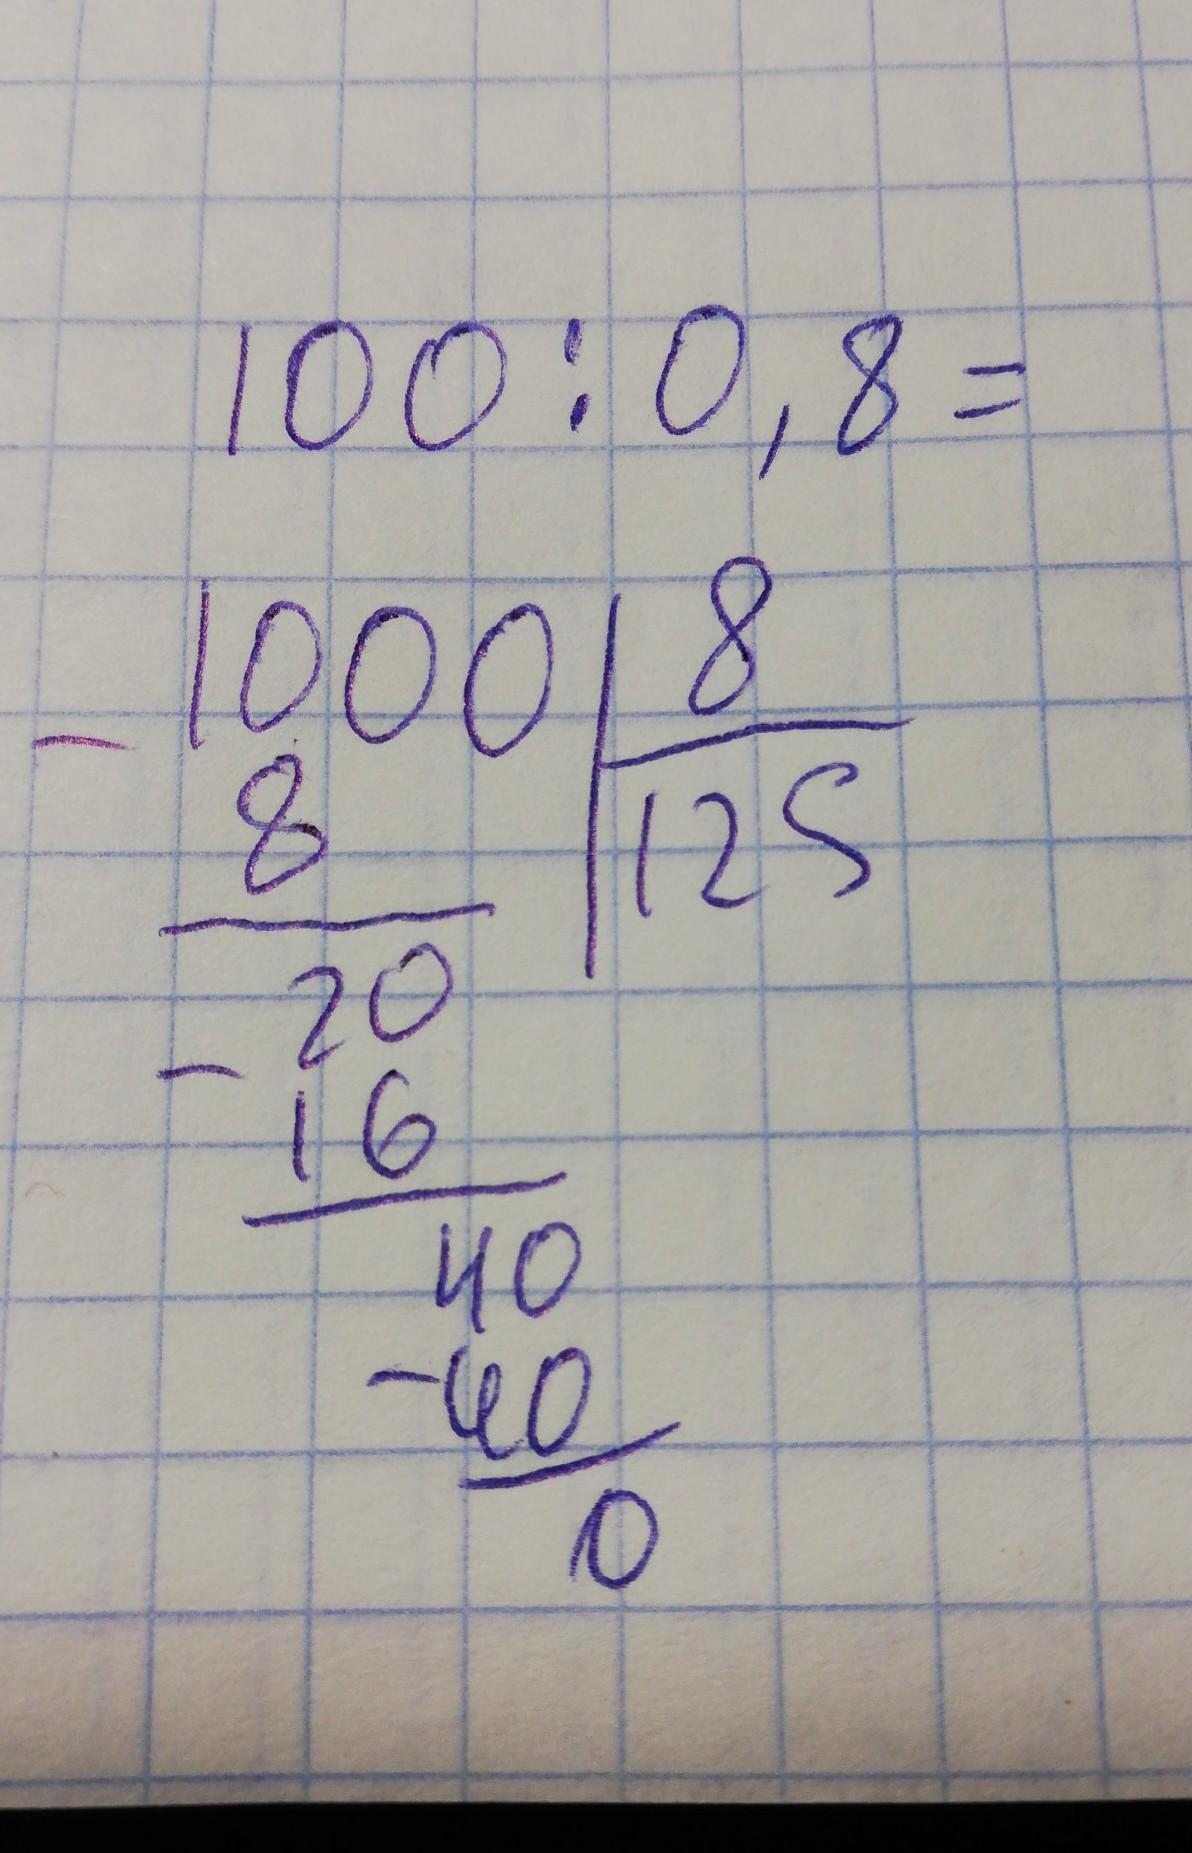 100:0,8=
1000 | 8
- 8 | 125
20
- 16
40
-40
0